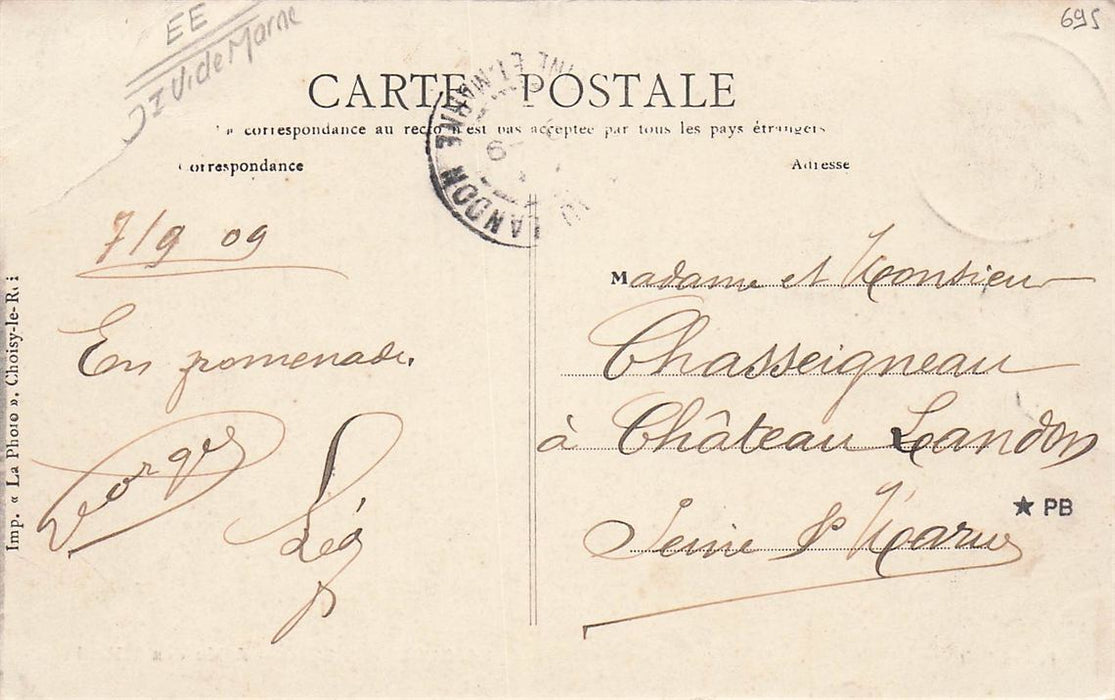 EE
695
CARTE POSTALE
La correspondance au recto n'est pas acceptée par tous les pays étrangers
Correspondance
Adresse
LANDON
SEINE-ET-MARNE
7/9 09
En promenade.
Léo
Madame et Monsieur
Chasseigneau
à Château Landon
Seine & Marne
★ PB
Imp. « La Photo ». Choisy-le-Roi